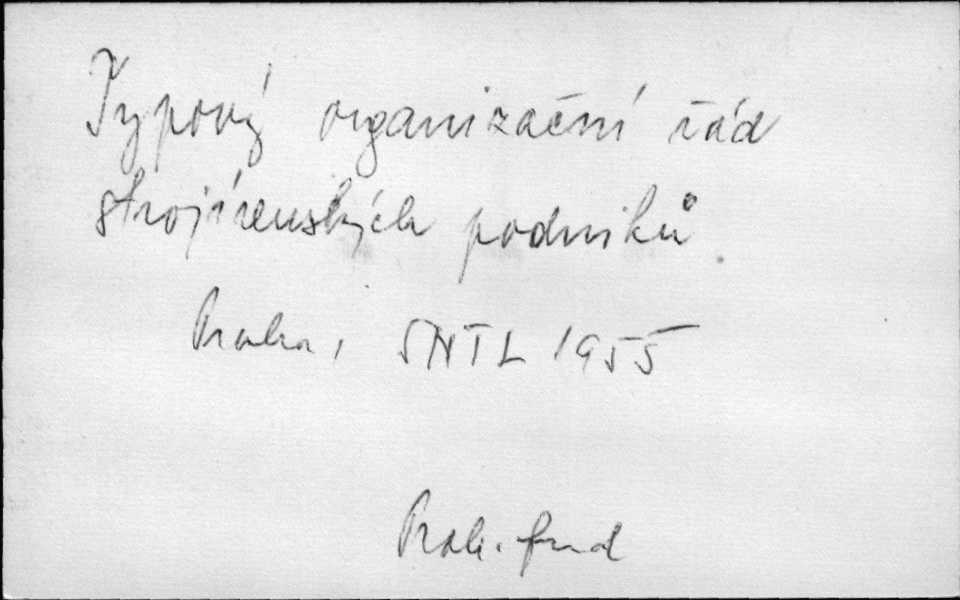 Typový organizační řád
strojírenských podniků.
Praha, SNTL 1955
fond